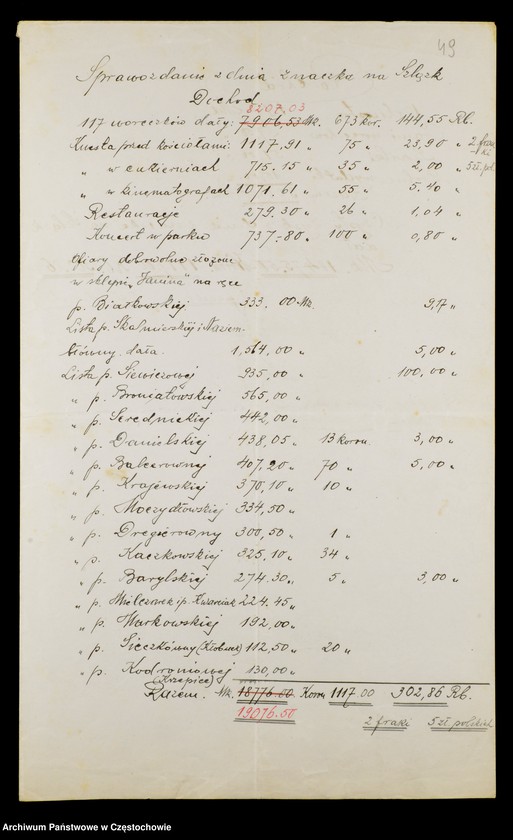 49
Sprawozdanie z dnia Znaczka na Szląsk
Dochod
8207.03
117 woreczków dały: 7906,53 Mk. 673 kor. 144,55 Rb.
Kwesta przed kościołami: 1117.91 " 75 " 23,90 " 2 franki
" w cukierniach 715.15 " 35 " 2,00 " 5 zł. pol.
" w kinematografach 1071.61 " 55 " 5.40 "
Restauracje 279.30 " 26 " 1,04 "
Koncert w parku 737.80 " 100 " 0,80 "
Ofiary dobrowolne złożone
w sklepie "Janina" na ręce
p. Białkowskiej 333.00 Mk. 9,17 "
Lista p. Skalmierskiej i Naziem-
błówny. dała. 1,564,00 " 5,00 "
Lista p. Siewiczowej 935,00 " 100,00 "
" p. Broniatowskiej 565,00 "
" p. Serednickiej 442,00 "
" p. Danielskiej 438,05 " 13 koron 3,00 "
" p. Balcerownej 407,20 " 70 " 5,00 "
" p. Krajewskiej 370,10 " 10 "
" p. Moczydłowskiej 334,50 "
" p. Dregierowny 300,50 " 1 "
" p. Kaczkowskiej 325.10 " 34 "
" p. Barylskiej 274.30 " 5 " 3,00 "
" p. Milczarek i p. Kwarciak 224.45 "
" p. Markowskiej 192,00 "
" p. Sieczkówny (Kłobuck) 112,50 " 20 "
" p. Kodroniowej 130,00 "
(Krzepice)
Razem. Mk. 18776.00 Koron 1117.00 302,86 Rb.
19076.50 2 franki 5 zł. polskich
Archiwum Państwowe w Częstochowie